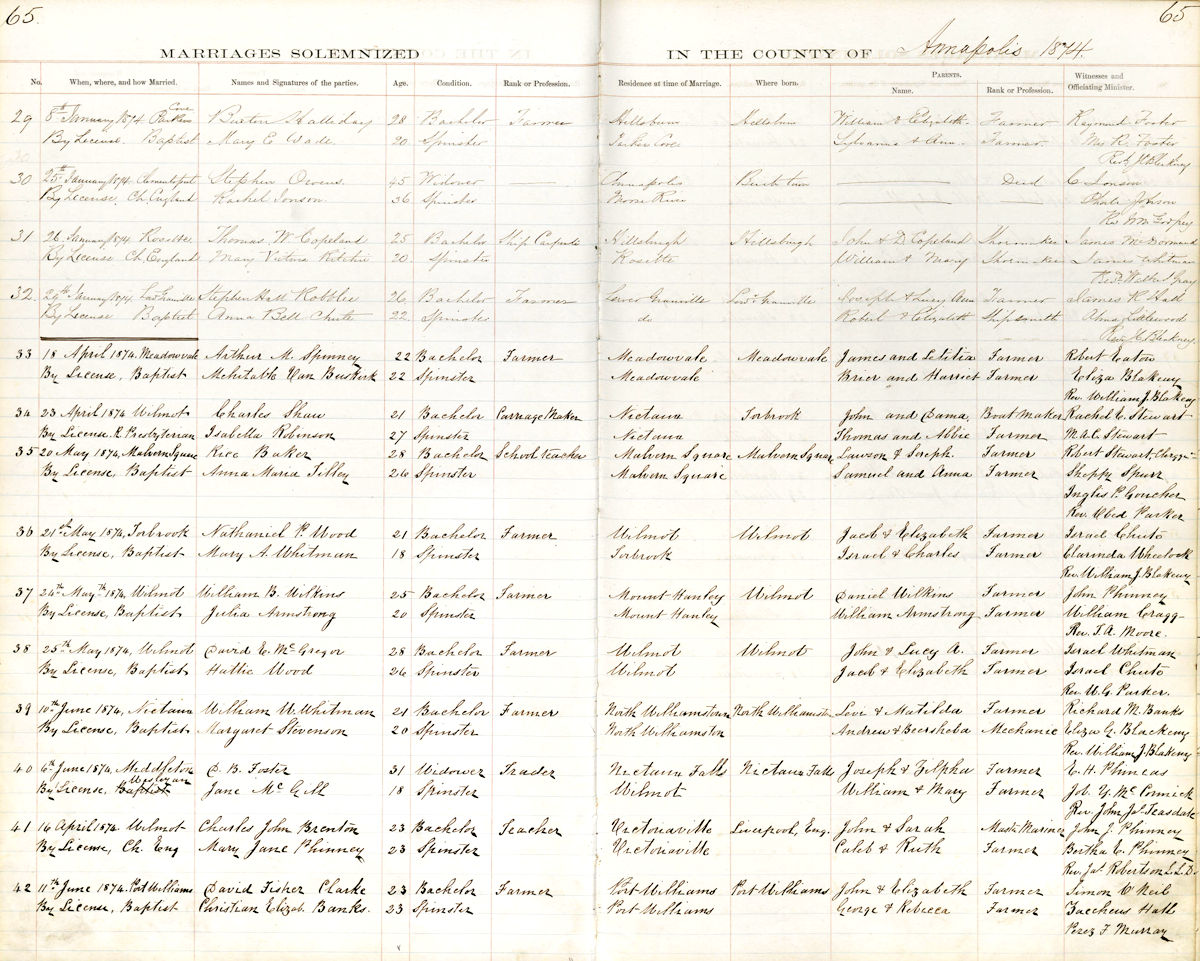 65. 65
MARRIAGES SOLEMNIZED IN THE COUNTY OF Annapolis 1874.
No. When, where, and how Married. Names and Signatures of the parties. Age. Condition. Rank or Profession. Residence at time of Marriage. Where born. PARENTS. Name. Rank or Profession. Witnesses and Officiating Minister.
29 8th January 1874 Parkers Cove Burton Halliday 28 Bachelor Farmer Hillsburn Hillsburn William & Elizabeth Farmer Raymond Foster
By License. Baptist Mary E Wade 20 Spinster Parker Cove Sylvanus & Ann Farmer. Mrs R. Foster
30 25th January 1874 Stephen Owens 45 Widower Annapolis Died C. Ionson
By License. Ch. England Rachel Ionson 36 Spinster Moose River
31 26 January 1874 Rosette Thomas W Copeland 25 Bachelor Ship Carpenter Hillsburgh Hillsburgh John & D. Copeland Shoemaker James McDormand
By License Ch. England Mary Victoria Ritchie 20. Spinster Rosette William & Mary Shoemaker James Whitman
32. 29th January 1874 Stephen Hall Robblee 26 Bachelor Farmer Lower Granville Lowr. Granville Joseph & Lucy Ann Farmer James R Hall
By License Baptist Anna Bell Chute 22 Spinster do Robert & Elizabeth Shipsmith Alma Littlewood
33 18 April 1874. Meadowvale Arthur M. Spinney 22 Bachelor Farmer Meadowvale Meadowvale James and Letitia Farmer Robert Eaton
By License, Baptist Mehitable Van Buskirk 22 Spinster Meadowvale Brier and Harriet Farmer Eliza Blakeny
Rev. William J. Blakeny
34 23 April 1874 Wilmot Charles Shaw 21 Bachelor Carriage Maker Nictaux Torbrook John and Dama. Boat Maker Rachel C. Stewart
By License. R. Presbyterian Isabella Robinson 27 Spinster Nictaux Thomas and Abbie Farmer M.A.C. Stewart
35 20 May 1874, Malvern Square Rice Baker 28 Bachelor School teacher Malvern Square Malvern Square Lawson & Joseph. Farmer Robert Stewart, Clergy
By License, Baptist Anna Maria Tilley 26 Spinster Malvern Square Samuel and Anna Farmer Shippy Spurr
Inglis P. Goucher
Rev. Obed Parker
36 21st May 1874, Torbrook Nathaniel P. Wood 21 Bachelor Farmer Wilmot Wilmot Jacob & Elizabeth Farmer Israel Chute
By License, Baptist Mary A Whitman 18 Spinster Torbrook Israel & Charles Farmer Clarinda Wheelock
Rev. William J. Blakeny
37 24th May 1874, Wilmot William B. Wilkins 25 Bachelor Farmer Mount Hanley Wilmot Daniel Wilkins Farmer John Phinney
By License, Baptist. Julia Armstrong 20 Spinster Mount Hanley William Armstrong Farmer William Cragg
Rev. T. A. Moore.
38 25th May 1874, Wilmot David E. McGregor 28 Bachelor Farmer Wilmot Wilmot John & Lucy A. Farmer Israel Whitman
By License, Baptist Hattie Wood 26 Spinster Wilmot Jacob & Elizabeth Farmer Israel Chute
Rev. W. G. Parker.
39 10th June 1874, Nictaux William W. Whitman 21 Bachelor Farmer North Williamston North Williamston Levi & Matilda Farmer Richard M. Banks
By License, Baptist Margaret Stevenson 20 Spinster North Williamston Andrew & Beersheba Mechanic Eliza G. Blackeny
Rev. William J. Blakeny
40 6th June 1874, Middleton D. B. Foster 31 Widower Trader Nictaux Falls Nictaux Falls Joseph & Zilpha Farmer E. H. Phineas
By License, Baptist Wesleyan Jane McGill 18 Spinster Wilmot William & Mary Farmer Job. Y. McCormick
Rev John Js. Teasdale
41 16 April 1874. Wilmot Charles John Brenton 23 Bachelor Teacher Victoriaville Liverpool, Eng. John & Sarah Mastr Mariner John J. Phinney
By License, Ch. Eng Mary Jane Phinney 23 Spinster Victoriaville Caleb & Ruth Farmer Bertha C. Phinney
Rev. Jas. Robertson L.L.D.
42 11th June 1874. Port Williams David Fisher Clarke 23 Bachelor Farmer Port Williams Port Williams John & Elizabeth Farmer Simon O'Neil
By License, Baptist Christian Elizab. Banks. 23 Spinster Port Williams George & Rebecca Farmer Zaccheus Hall
Perez F Murray